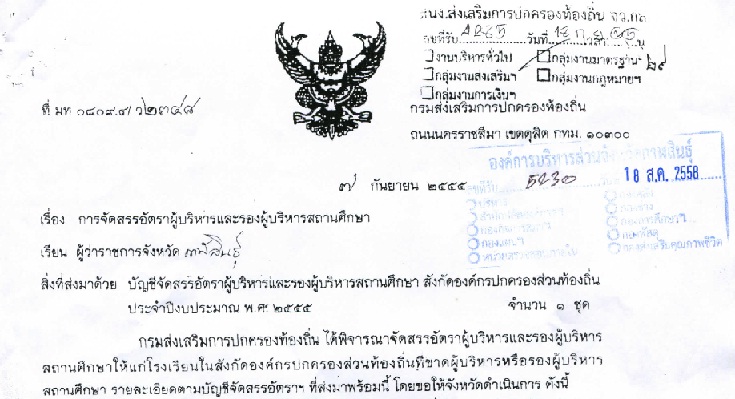 สนง.ส่งเสริมการปกครองท้องถิ่น จว.กส
เลขที่รับ วันที่ เวลา น
งานบริหารทั่วไป กลุ่มงานมาตรฐานฯ
กลุ่มงานส่งเสริมฯ กลุ่มงานกฎหมายฯ
กลุ่มงานการเงินฯ
ที่ มท ๐๘๐๙.๗/ว๒๓๔๘
กรมส่งเสริมการปกครองท้องถิ่น
ถนนนครราชสีมา เขตดุสิต กทม. ๑๐๓๐๐
องค์การบริหารส่วนจังหวัดกาฬสินธุ์
เลขที่รับ 5430
18 ส.ค. 2558
๗ กันยายน ๒๕๕๕
เรื่อง การจัดสรรอัตราผู้บริหารและรองผู้บริหารสถานศึกษา
เรียน ผู้ว่าราชการจังหวัด กาฬสินธุ์
สิ่งที่ส่งมาด้วย บัญชีจัดสรรอัตราผู้บริหารและรองผู้บริหารสถานศึกษา สังกัดองค์กรปกครองส่วนท้องถิ่น
ประจำปีงบประมาณ พ.ศ. ๒๕๕๕ จำนวน ๑ ชุด
กรมส่งเสริมการปกครองท้องถิ่น ได้พิจารณาจัดสรรอัตราผู้บริหารและรองผู้บริหาร
สถานศึกษาให้แก่โรงเรียนในสังกัดองค์กรปกครองส่วนท้องถิ่นที่ขาดผู้บริหารหรือรองผู้บริหาร
สถานศึกษา รายละเอียดตามบัญชีจัดสรรอัตราฯ ที่ส่งมาพร้อมนี้ โดยขอให้จังหวัดดำเนินการ ดังนี้